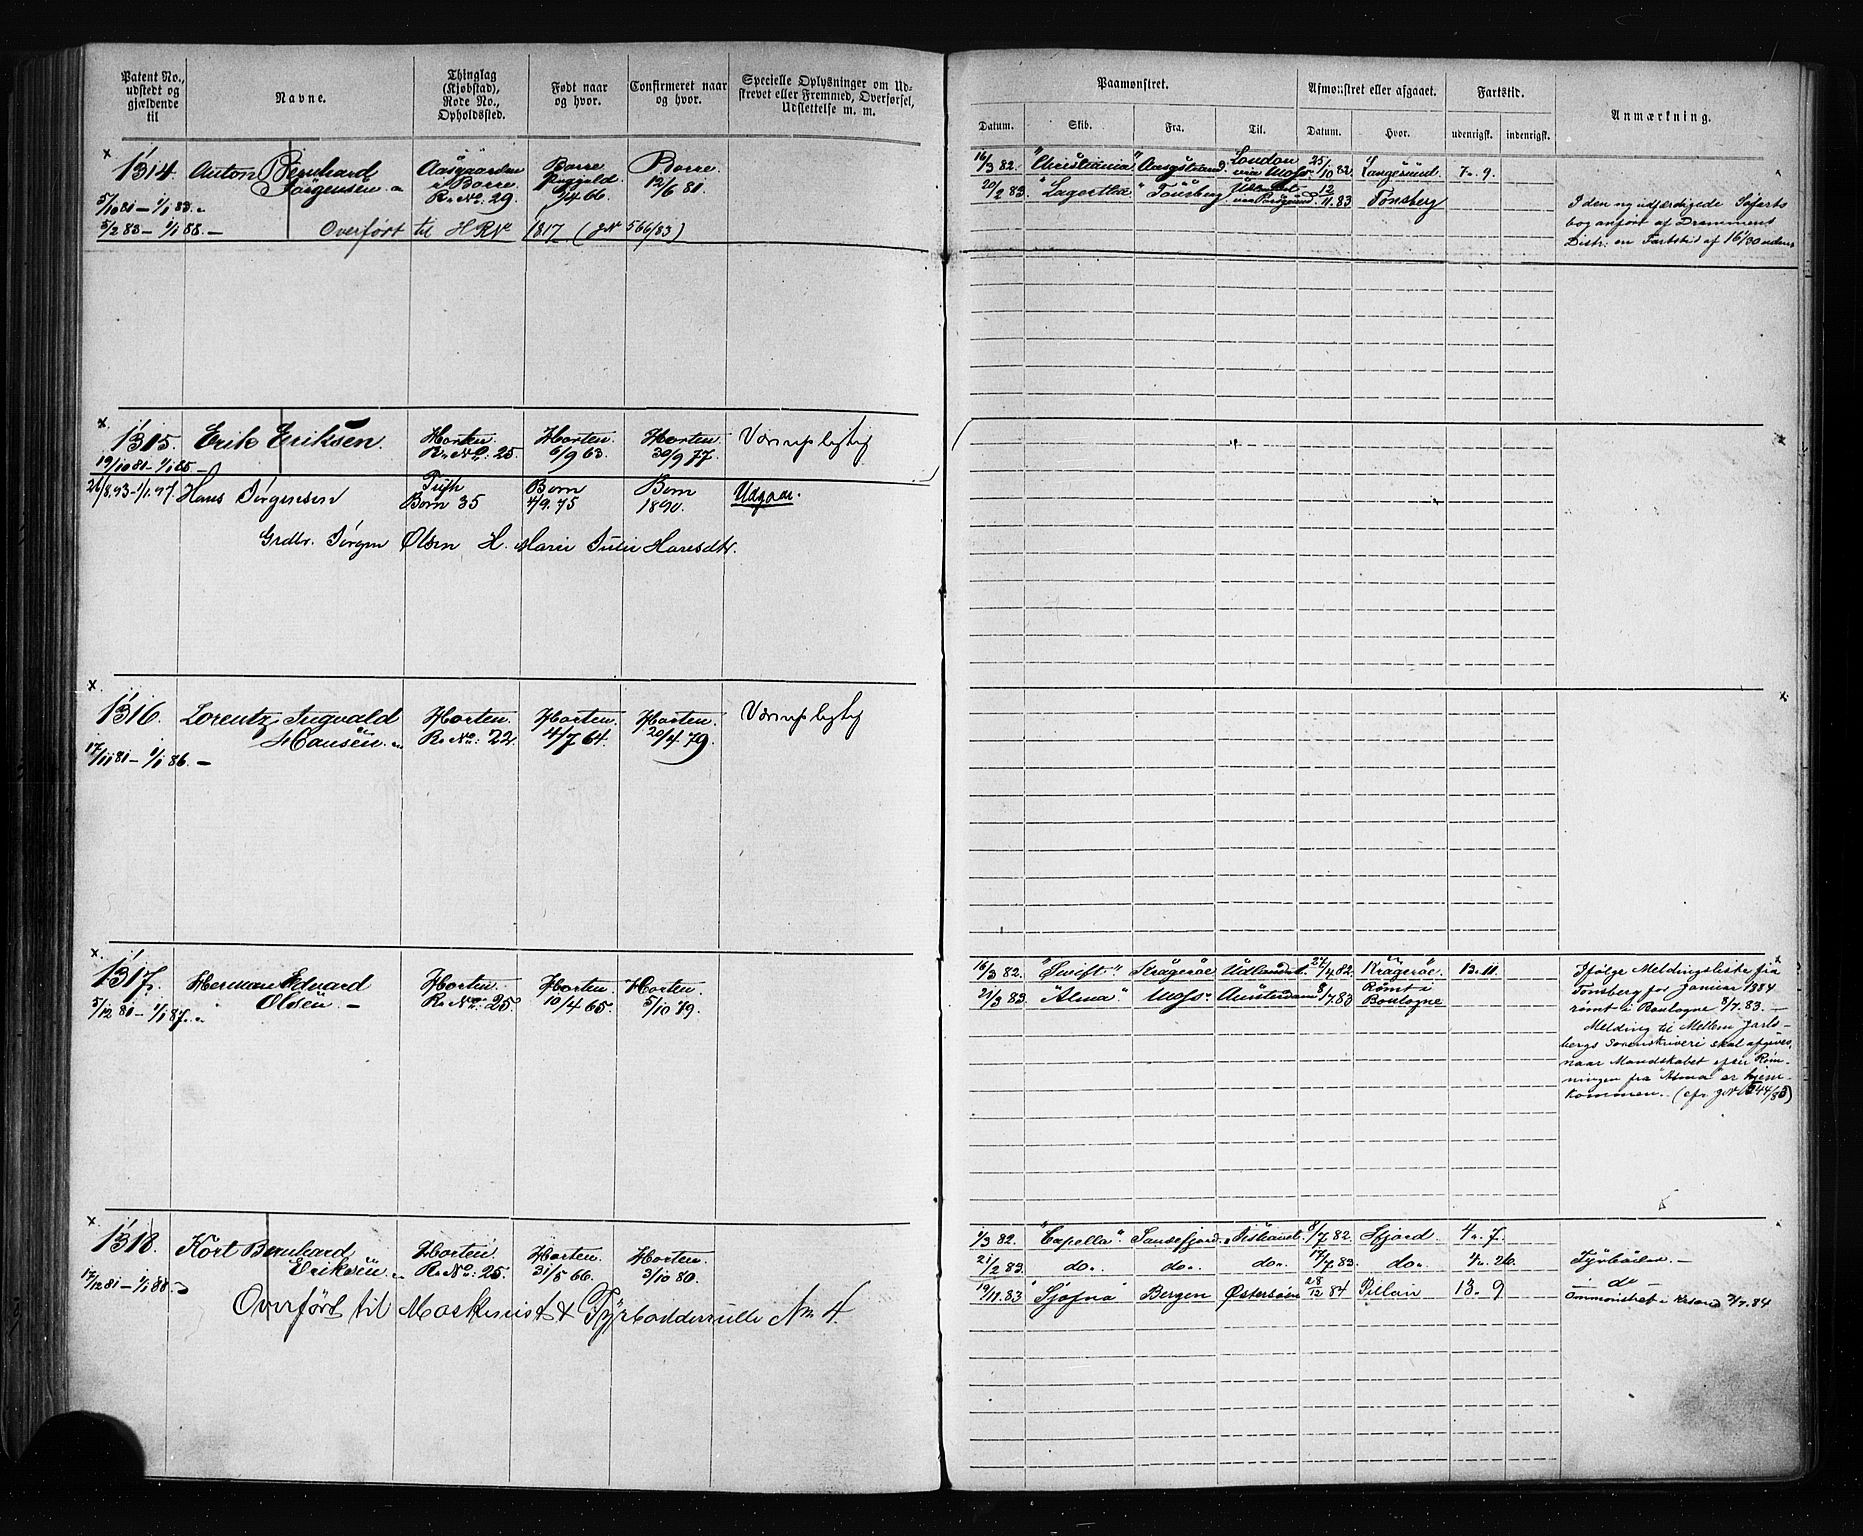 Patent No., udstedt og gjældende til
Navne.
Thinglag (Kjøbstad), Rode No., Opholdssted.
Født naar og hvor.
Confirmeret naar og hvor.
Specielle Oplysninger om Udskrevet eller Fremmed, Overførsel, Udslettelse m. m.
Paamønstret.
Afmønstret eller afgaaet.
Fartstid.
Anmærkning.
Datum. Skib. Fra. Til. Datum. Hvor. udenrigsk. indenrigsk.
1314. Anton Bernhard Jørgensen
Aasgaarden i Borre. R. No. 29.
Borre 9/4 66.
Borre. 12/6 81
5/10 81 – 1/1 83.
5/2 83 – 1/1 88. –
Overført til HRNr 1817 (JN 566/83)
16/3 82. "Christiania" Aasgstrand London via Moss 25/10 82. Langesund. 7. 9.
20/2 83. "Lagertha" Tønsberg 12/11 83 Tønsberg
I den ny udfærdigede Søfarts
bog anført af Drammens
Distr. en Fartstid af 16 1/30 udens
1315. Erik Eriksen.
Horten. R. No: 25.
Horten. 6/9 63.
Horten. 30/9 77.
Værnepligtig
19/10 81 – 1/1 85 –
26/8.93 – 1/1.97. Hans Jørgensen
Born 35
Born 4/9. 75
Born 1890.
Udgaar.
Grdbr. Jørgen Olsen H. Marie Julie Hansdtr.
1316. Lorentz Ingvald Hansen.
Horten. R. No: 22.
Horten. 4/7 64.
Horten. 20/4 79.
Værnepligtig
17/11 81 – 1/1 86. –
1317. Herman Edvard Olsen. –
Horten. R. No: 25.
Horten. 10/4 65.
Horten. 5/10 79.
5/12 81 – 1/1 87.
16/3 82. "Swift" Kragerøe Udlandet. 24/4 82. Kragerøe. 13. 11.
21/3 83. "Alma" Moss Amsterdam 8/7 83 Rømt i Boulogne
Ifølge Meldingsliste fra
Tønsberg for Januar 1884
rømt i Boulogne 8/7. 83. –
Melding til Mellem Jarls-
bergs Sorenskriveri skal afgives,
naar Mandskabet efter Røm-
ningen fra "Alma" er hjem-
kommen.
1318. Kort Bernhard Eriksen
Horten. R. No: 25.
Horten. 31/5 66.
Horten. 3/10 80.
17/12 81 – 1/1 88.
Overført til Maskinist & Fyrbøderrulle No 4.
1/3 82. "Capella" Sandefjord. 8/7 82 Sfjord 4. 7.
21/2 83. do. do. do. 17/7 83. do. 4. 26. Fyrbøder. –
19/11 83 "Sjøfna" Bergen Østersøen 28/12 84 Pillau 13. 9 – do –